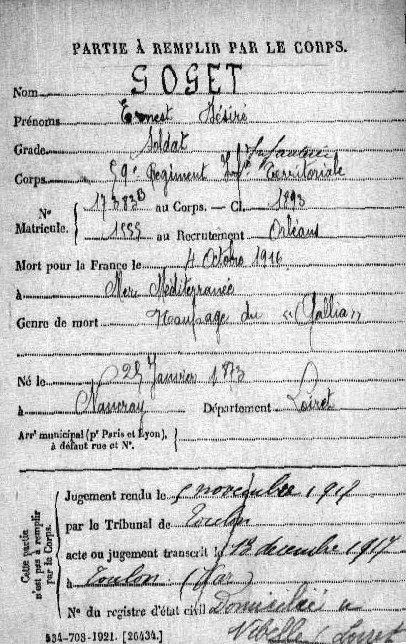 PARTIE À REMPLIR PAR LE CORPS.
Nom GOGET
Prénoms Ernest Désiré
Grade Soldat
Corps 59e Régiment Inf. Territoriale
N° Matricule.
17383B au Corps. — Cl. 1893
1555 au Recrutement Orléans
Mort pour la France le 4 Octobre 1916
à Mer Méditerranée
Genre de mort Naufrage du « Gallia »
Né le 25 Janvier 1873
à Nancray Département Loiret
Arrt municipal (pr Paris et Lyon),
à défaut rue et N°.
Cette partie n'est pas à remplir par le Corps.
Jugement rendu le 5 novembre 1917
par le Tribunal de Toulon
acte ou jugement transcrit le 12 decembre 1917
à Toulon (Var)
N° du registre d'état civil Domicilié a
Loiret
534-708-1921. [26434.]